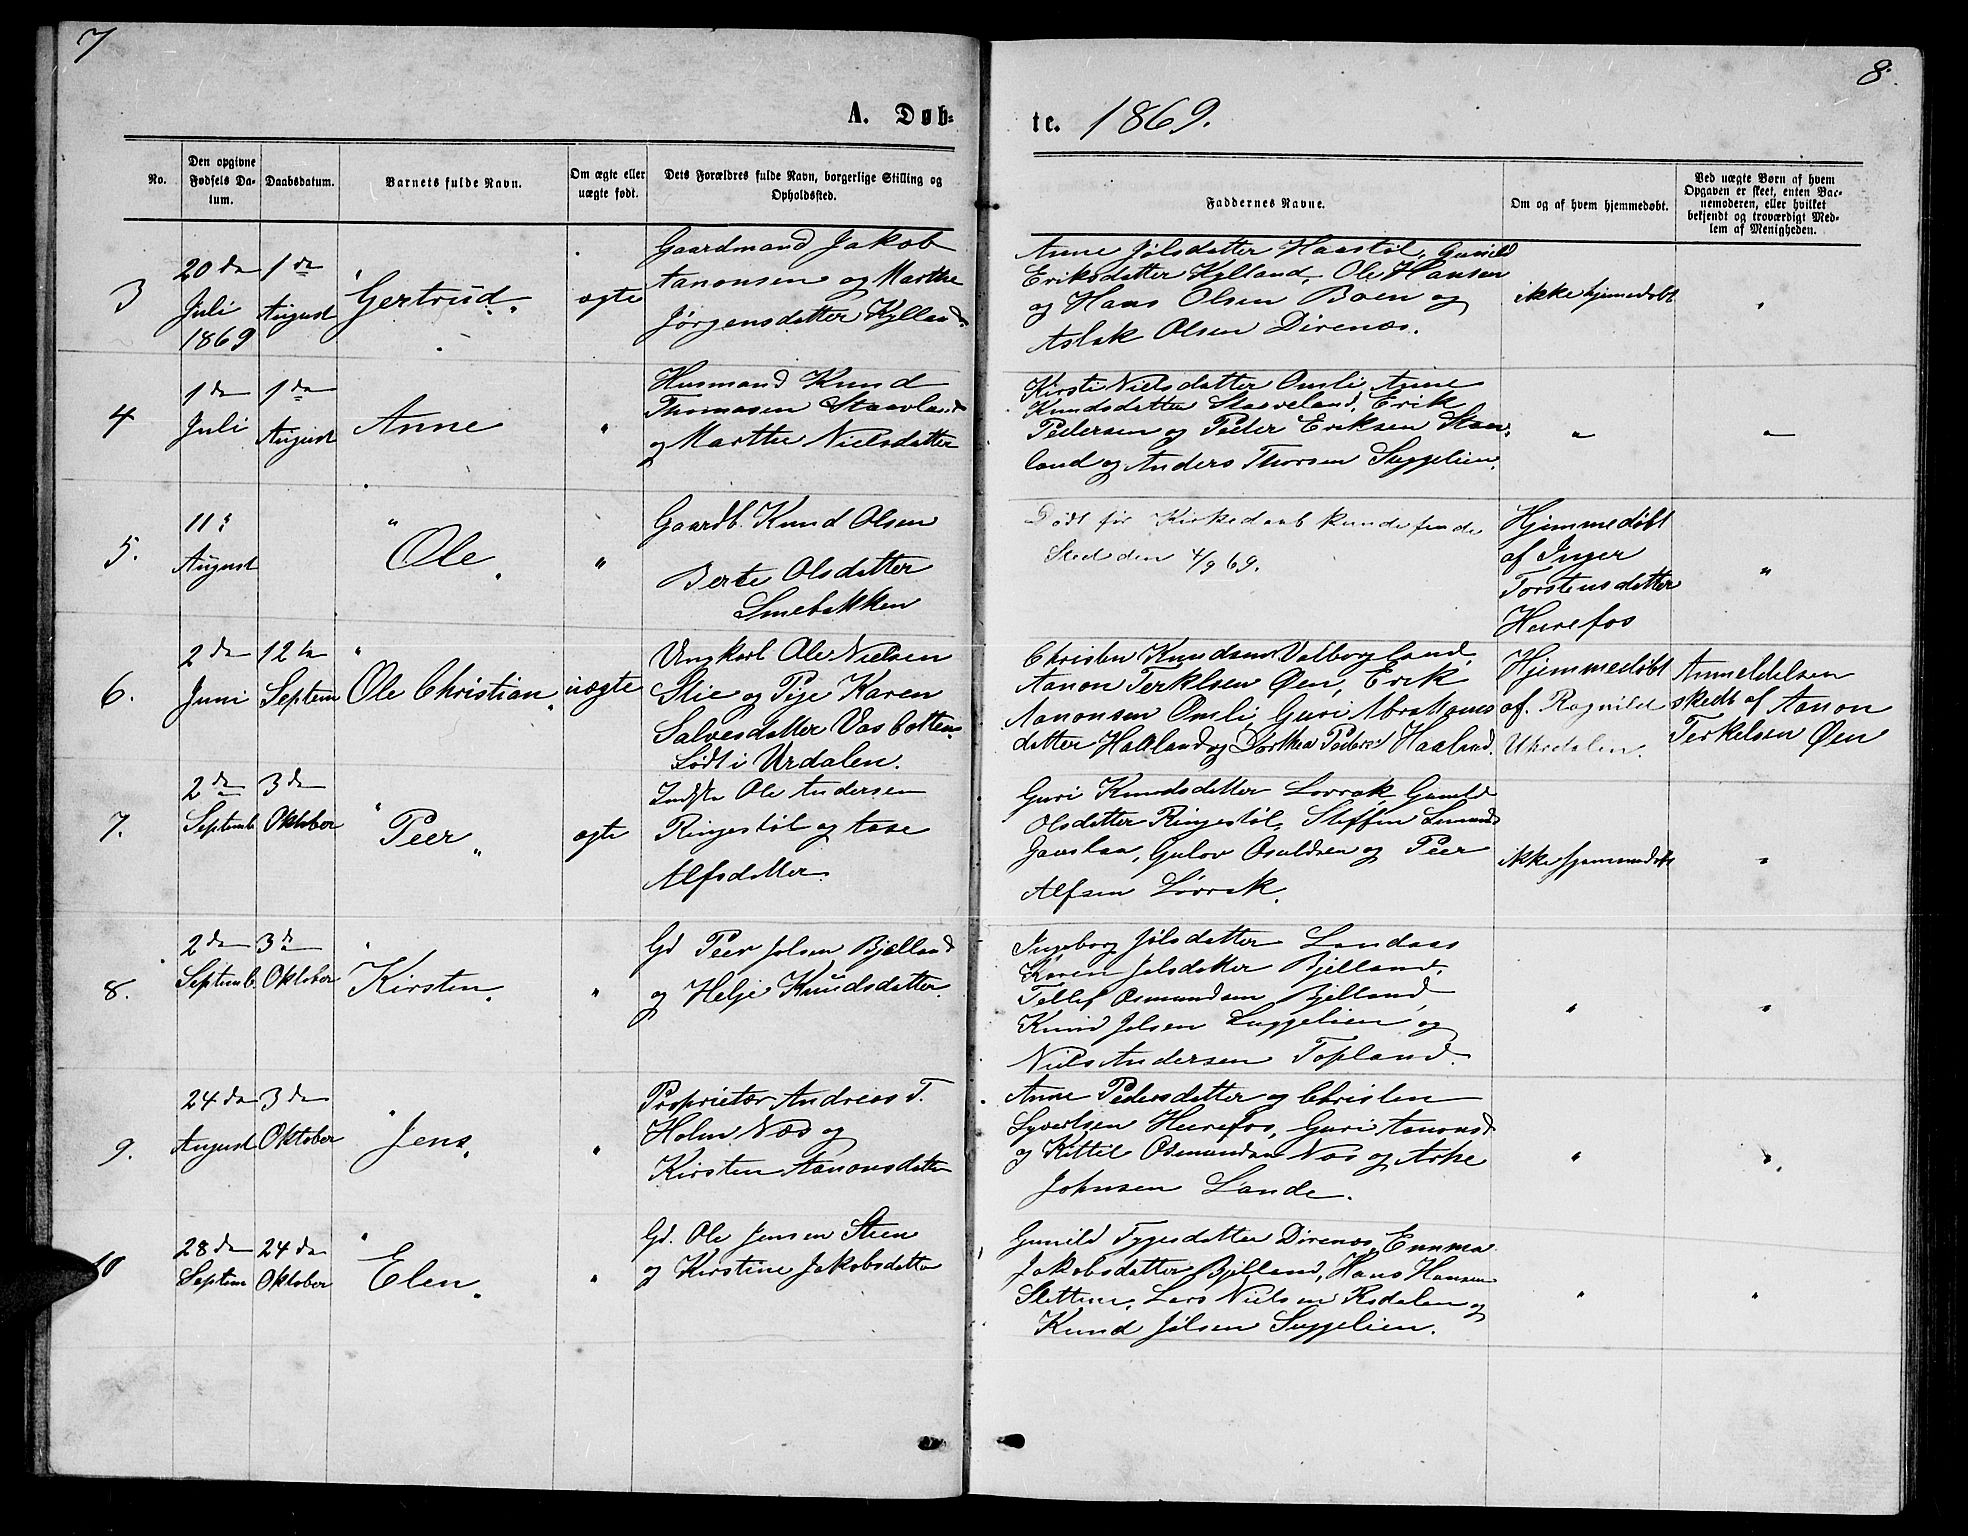 7
8.
A. Døb-
te. 1869.
No.
Den opgivne Fødsels Da-
tum.
Daabsdatum.
Barnets fulde Navn.
Om ægte eller
uægte født.
Dets Forældres fulde Navn, borgerlige Stilling og
Opholdssted.
Faddernes Navne.
Om og af hvem hjemmedøbt.
Ved uægte Børn af hvem
Opgaven er skeet, enten Bar-
nemoderen, eller hvilket
bekjendt og troværdigt Med-
lem af Menigheden.
3
20de
Juli
1869
1de
August
Gertrud
ægte
Gaardmand Jakob
Aanonsen og Marthe
Jørgensdatter Kylland
Anne Jølsdatter Haastøl, Gunild
Eriksdatter Kylland, Ole Hansen
og Hans Olsen Boen og
Aslak Olsen Direnæs.
ikke hjemmedøbt
"
4
1de
Juli
1de
August
Anne
"
Husmand Knud
Thomasen Staavland
og Marthe Nielsdatter
Kirsti Nielsdatter Omli, Anne
Knudsdatter Staaveland, Erik
Pedersen og Peder Eriksen Staav-
land og Anders Thorsen Suggelien.
"
"
5.
11te
August
Ole
"
Gaardb. Knud Olsen
Berte Olsdatter
Smebakken
Dødt før Kirkedaab kunde finde
Sted den 4/9 69.
Hjemmedøbt
af Inger
Torstensdatter
Herefos
"
6.
2de
Juni
12te
Septem
Ole Christian
uægte
Ungkarl Ole Nielsen
Stie og Pige Karen
Salvesdatter Vasbotten
Født i Urdalen.
Christen Knudsen Valborgland,
Aanon Terkelsen Øen, Erik
Aanonsen Omli, Guri Abrahams
datter Haaland og Dorthea Pedersd Haaland.
Hjemmedøbt
af Ragnild
Uhredalen.
Anmeldelsen
skedt af Aanon
Terkelsen Øen
7.
2de
Septemb
3de
Oktober
Peer
ægte
Indste Ole Andersen
Ringestøl og Aase
Alfsdatter
Guri Knudsdatter Lovrak, Gunild
Olsdatter Ringestøl, Steffen
Gauslaa, Gulov Osuldsen og Peer
Alfsen Lovrak.
ikke hjemmedøbt
"
8.
2de
Septemb.
3de
Oktober
Kirsten
"
Gd Peer Jolsen Bjelland
og Helje Knudsdatter
Ingeborg Jølsdatter Landaas
Karen Jølsdatter Bjelland,
Tellef Osmundsen Bjelland,
Knud Jølsen Suggelien og
Niels Andersen Topland.
"
"
9.
24de
August
3de
Oktober
Jens
"
Proprietær Andreas T.
Holm Næs og
Kirsten Aanonsdatter
Anne Pedersdatter og Christen
Syvertsen Herefos, Guri Aanonsd
og Kittil Osmundsen Næs og Aske
Johnsen Lande.
"
"
10
28de
Septem
24de
Oktober
Elen
"
Gd. Ole Jensen Steen
og Kirstine Jakobsdatter
Gunild Tygesdatter Direnæs, Emma
Jakobsdatter Bjelland, Hans Hansen
Sletten, Lars Nielsen Risdalen og
Knud Jølsen Suggelien.
"
"